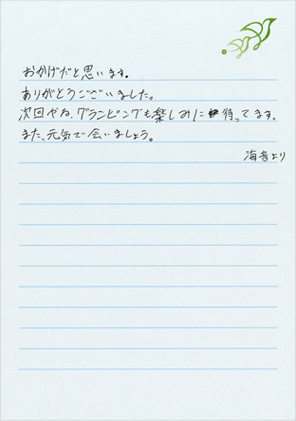 おかげだと思います。
ありがとうございました。
次回やね、グランピングも楽しみに待ってます。
また、元気で会いましょう。
海音より